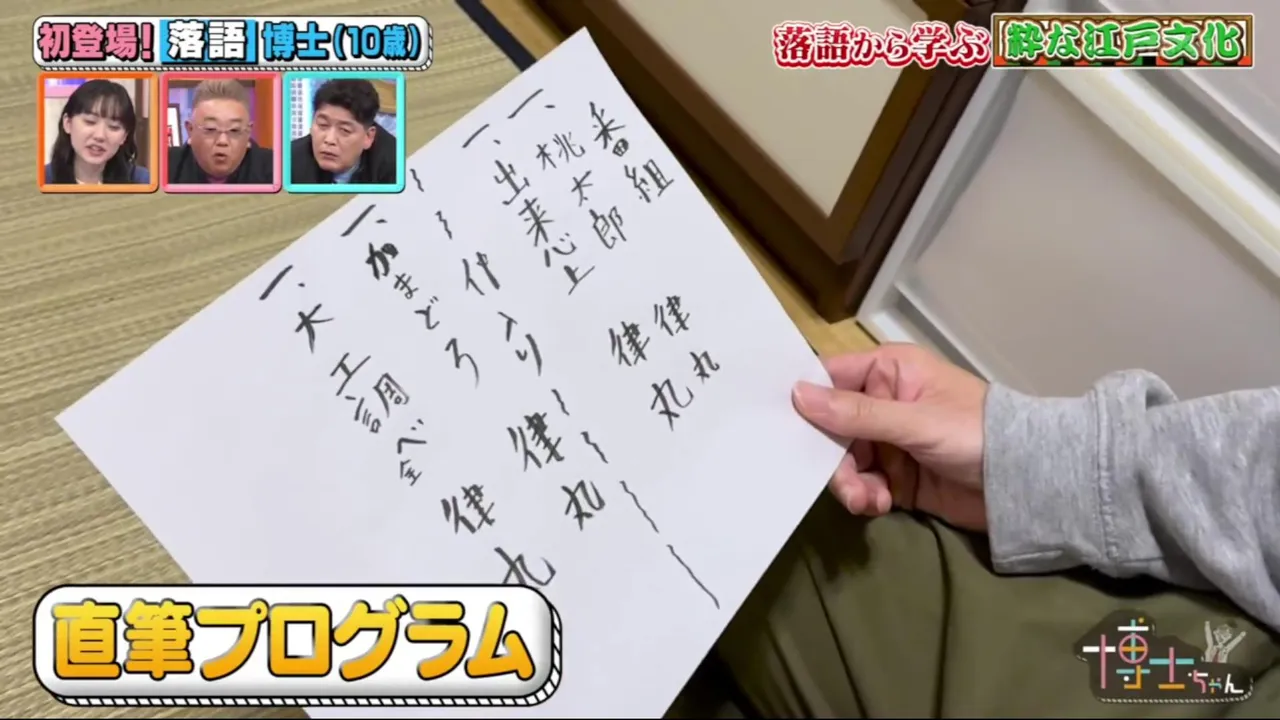 初登場!落語博士(10歳)
落語から学ぶ粋な江戸文化
番組
一、桃太郎 律丸
一、出来心上 律丸
〜〜仲入り〜〜〜〜
一、かまどろ 律丸
一、大工調べ全 律丸
直筆プログラム
博士ちゃん